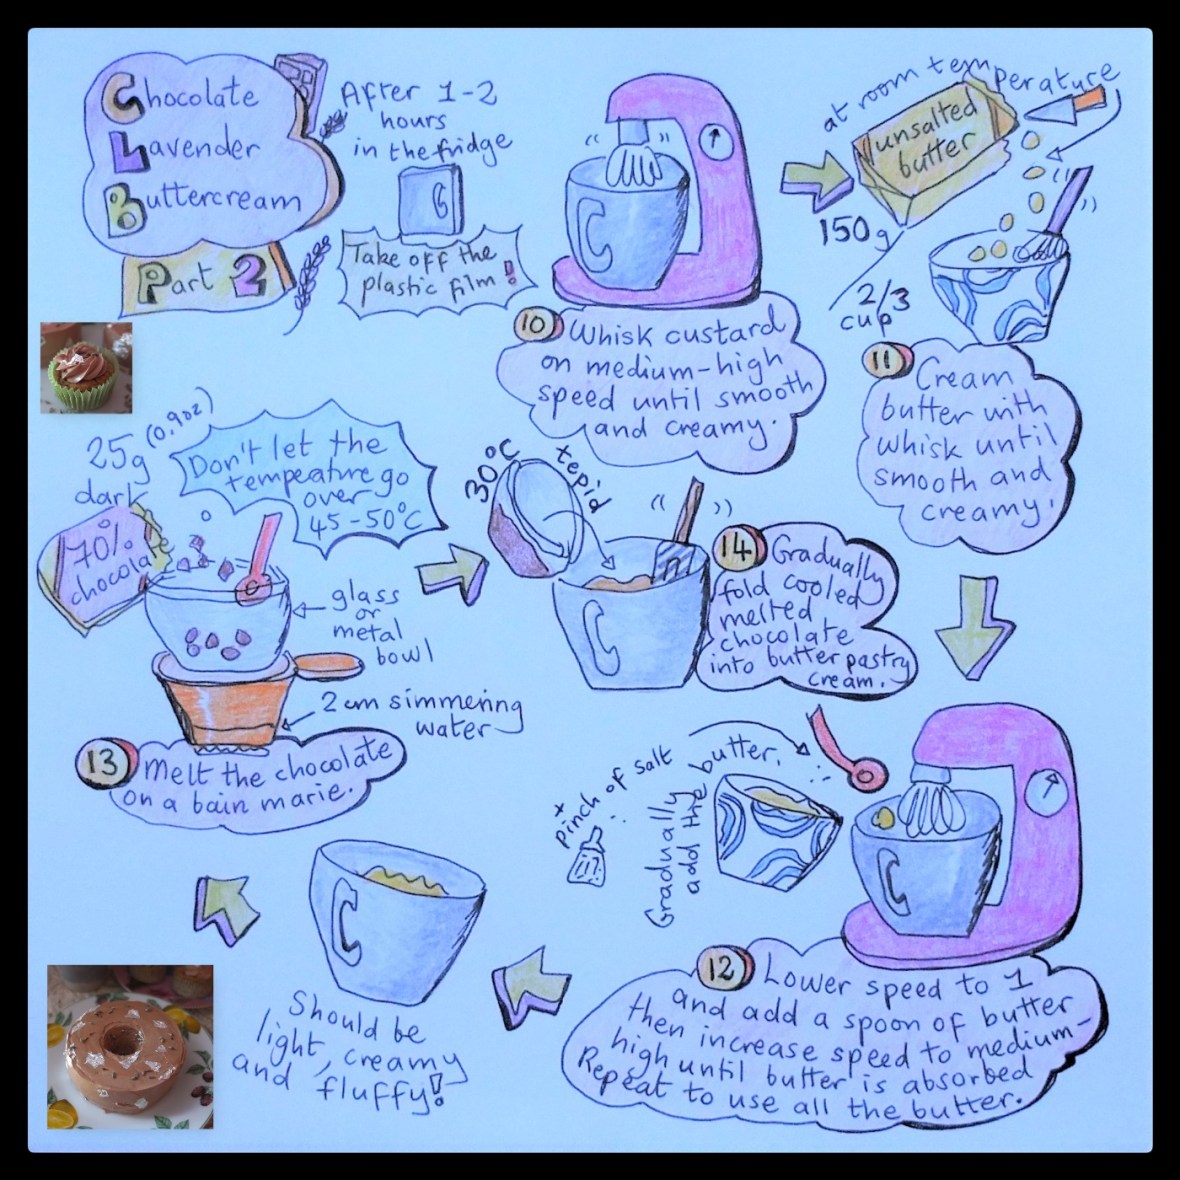 Chocolate
Lavender
Buttercream
Part 2
After 1-2
hours
in the fridge
C
Take off the
plastic film!
C
10 Whisk custard
on medium-high
speed until smooth
and creamy.
at room temperature
unsalted
butter
150g
2/3
cup
11 Cream
butter with
whisk until
smooth and
creamy!
C
12 Lower speed to 1
and add a spoon of butter
then increase speed to medium-
high until butter is absorbed
Repeat to use all the butter.
Gradually
add the butter.
+
pinch of salt
C
Should be
light, creamy
and fluffy!
25g (0.9oz)
dark
70%
chocola
Don't let the
tempeature go
over
45-50°C
glass
or
metal
bowl
2cm simmering
water
13 Melt the chocolate
on a bain marie.
30°C
tepid
C
14 Gradually
fold cooled
melted
chocolate
into butter pastry
cream.